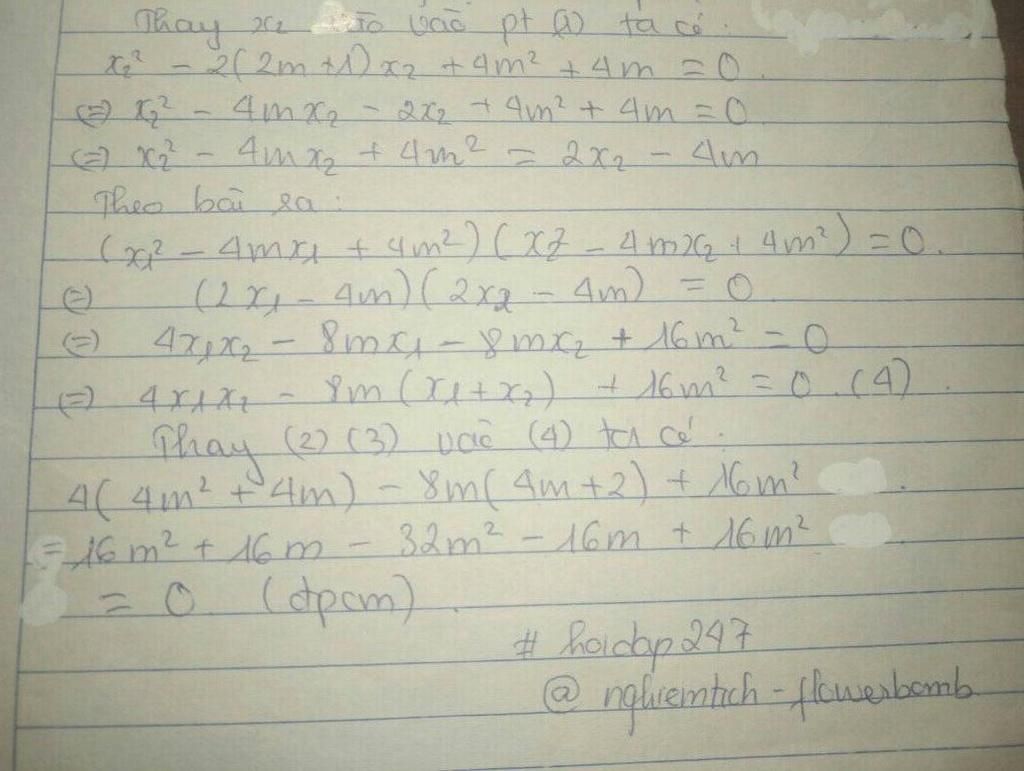 Thay x₂ vào pt (1) ta có.
x₂² - 2(2m+1)x₂ + 4m² + 4m = 0.
(=) x₂² - 4mx₂ - 2x₂ + 4m² + 4m = 0
(=) x₂² - 4mx₂ + 4m² = 2x₂ - 4m
Theo bài ra:
(x₁² - 4mx₁ + 4m²)(x₂² - 4mx₂ + 4m²) = 0.
(=) (2x₁ - 4m)(2x₂ - 4m) = 0
(=) 4x₁x₂ - 8mx₁ - 8mx₂ + 16m² = 0
(=) 4x₁x₂ - 8m(x₁+x₂) + 16m² = 0. (4).
Thay (2) (3) vào (4) ta có.
4(4m² + 4m) - 8m(4m+2) + 16m² .
= 16m² + 16m - 32m² - 16m + 16m²
= 0. (đpcm).
# hoidap247
@ nghiemtich-flowerbomb